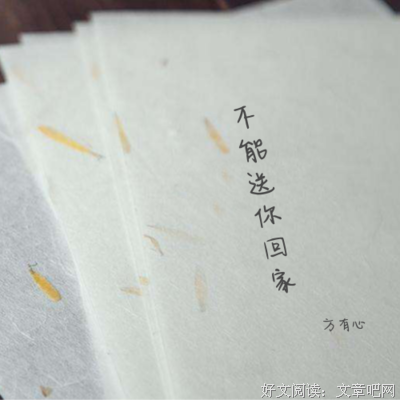 不能送你回家
方有心
好文阅读：文章吧网